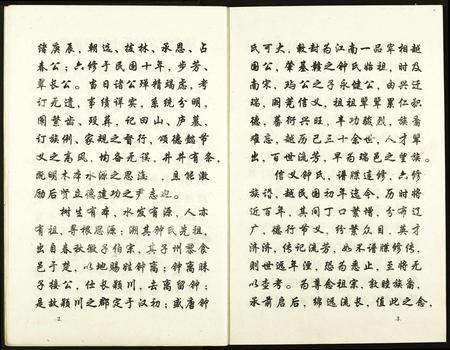 绪庚辰,朝远、拔林、承恩、占
春公;六修于民国十年,步芳、
翠长公。当日诸公殚精竭虑,考
订无遗,事绩详实,系统分明,
阄繁齿、殁葬,记田山、庐墓,
订族例、家规之督行,颂德懿节
义之高风,均备无误,井井有条,
既明木本水源之思念,且能激
励后贤立德建功之尹志也。
树生有本,水发有源,人亦
有祖,寻根思源;溯其钟氏先祖,
出自春秋微子伯宗,其子州黎食
邑于楚,以地赐姓钟离;钟离昧
子接公,仕长颍川,去离留钟;
是故颍川之郡定于汉初;盛唐钟
2.
氏可大,敕封为江南一品宰相越
国公,肇基赣之钟氏始祖,时及
南宋,玚公之子永健公,由兴迁
瑞,阖莞信义,祖祖辈辈累仁积
德,善衍兴旺,丰功骏烈,族裔
难忘,越历已三十余世,人才辈
出,百世流芳,早为瑞邑之望族。
信义钟氏,谱牒连修,六修
族谱,越民国初年迄今,历时将
近百年,其间丁口繁增,分布辽
广,德行节义,纷繁众目,英才
济济,传记流芳,如不谱牒修传,
则世远年湮,恐为悉止,至将无
以查考。为尊念祖宗,敦睦族裔,
承前启后,绵远流长,值此之念,
3.